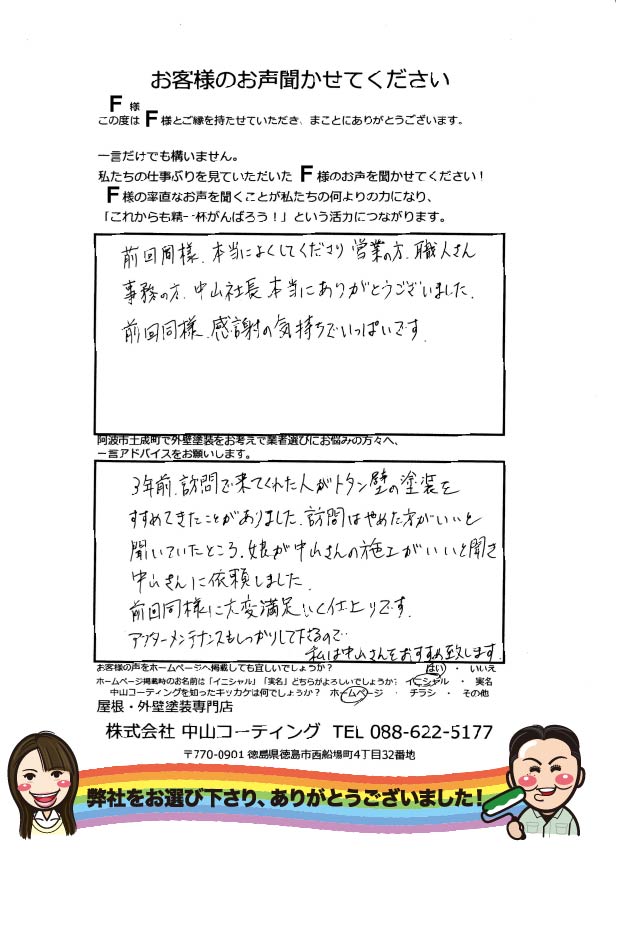 お客様のお声聞かせてください
F 様
この度は F 様とご縁を持たせていただき、まことにありがとうございます。
一言だけでも構いません。
私たちの仕事ぶりを見ていただいた F 様のお声を聞かせてください！
F 様の率直なお声を聞くことが私たちの何よりの力になり、
「これからも精一杯がんばろう！」という活力につながります。
前回同様、本当によくしてくださり 営業の方、職人さん
事務の方、中山社長 本当にありがとうございました。
前回同様、感謝の気持ちでいっぱいです。
阿波市土成町で外壁塗装をお考えで業者選びにお悩みの方々へ、
一言アドバイスをお願いします。
3年前、訪問で来てくれた人がトタン壁の塗装を
すすめてきたことがありました。訪問はやめた方がいいと
聞いていたところ、娘が中山さんの施工がいいと聞き
中山さんに依頼しました。
前回同様に大変満足いく仕上りです。
アフターメンテナンスもしっかりして下さるので
私は中山さんをおすすめ致します
お客様の声をホームページへ掲載しても宜しいでしょうか？ はい ・ いいえ
ホームページ掲載時のお名前は「イニシャル」「実名」どちらがよろしいでしょうか？ イニシャル ・ 実名
中山コーティングを知ったキッカケは何でしょうか？ ホームページ ・ チラシ ・ その他
屋根・外壁塗装専門店
株式会社 中山コーティング TEL 088-622-5177
〒770-0901 徳島県徳島市西船場町4丁目32番地
弊社をお選び下さり、ありがとうございました！